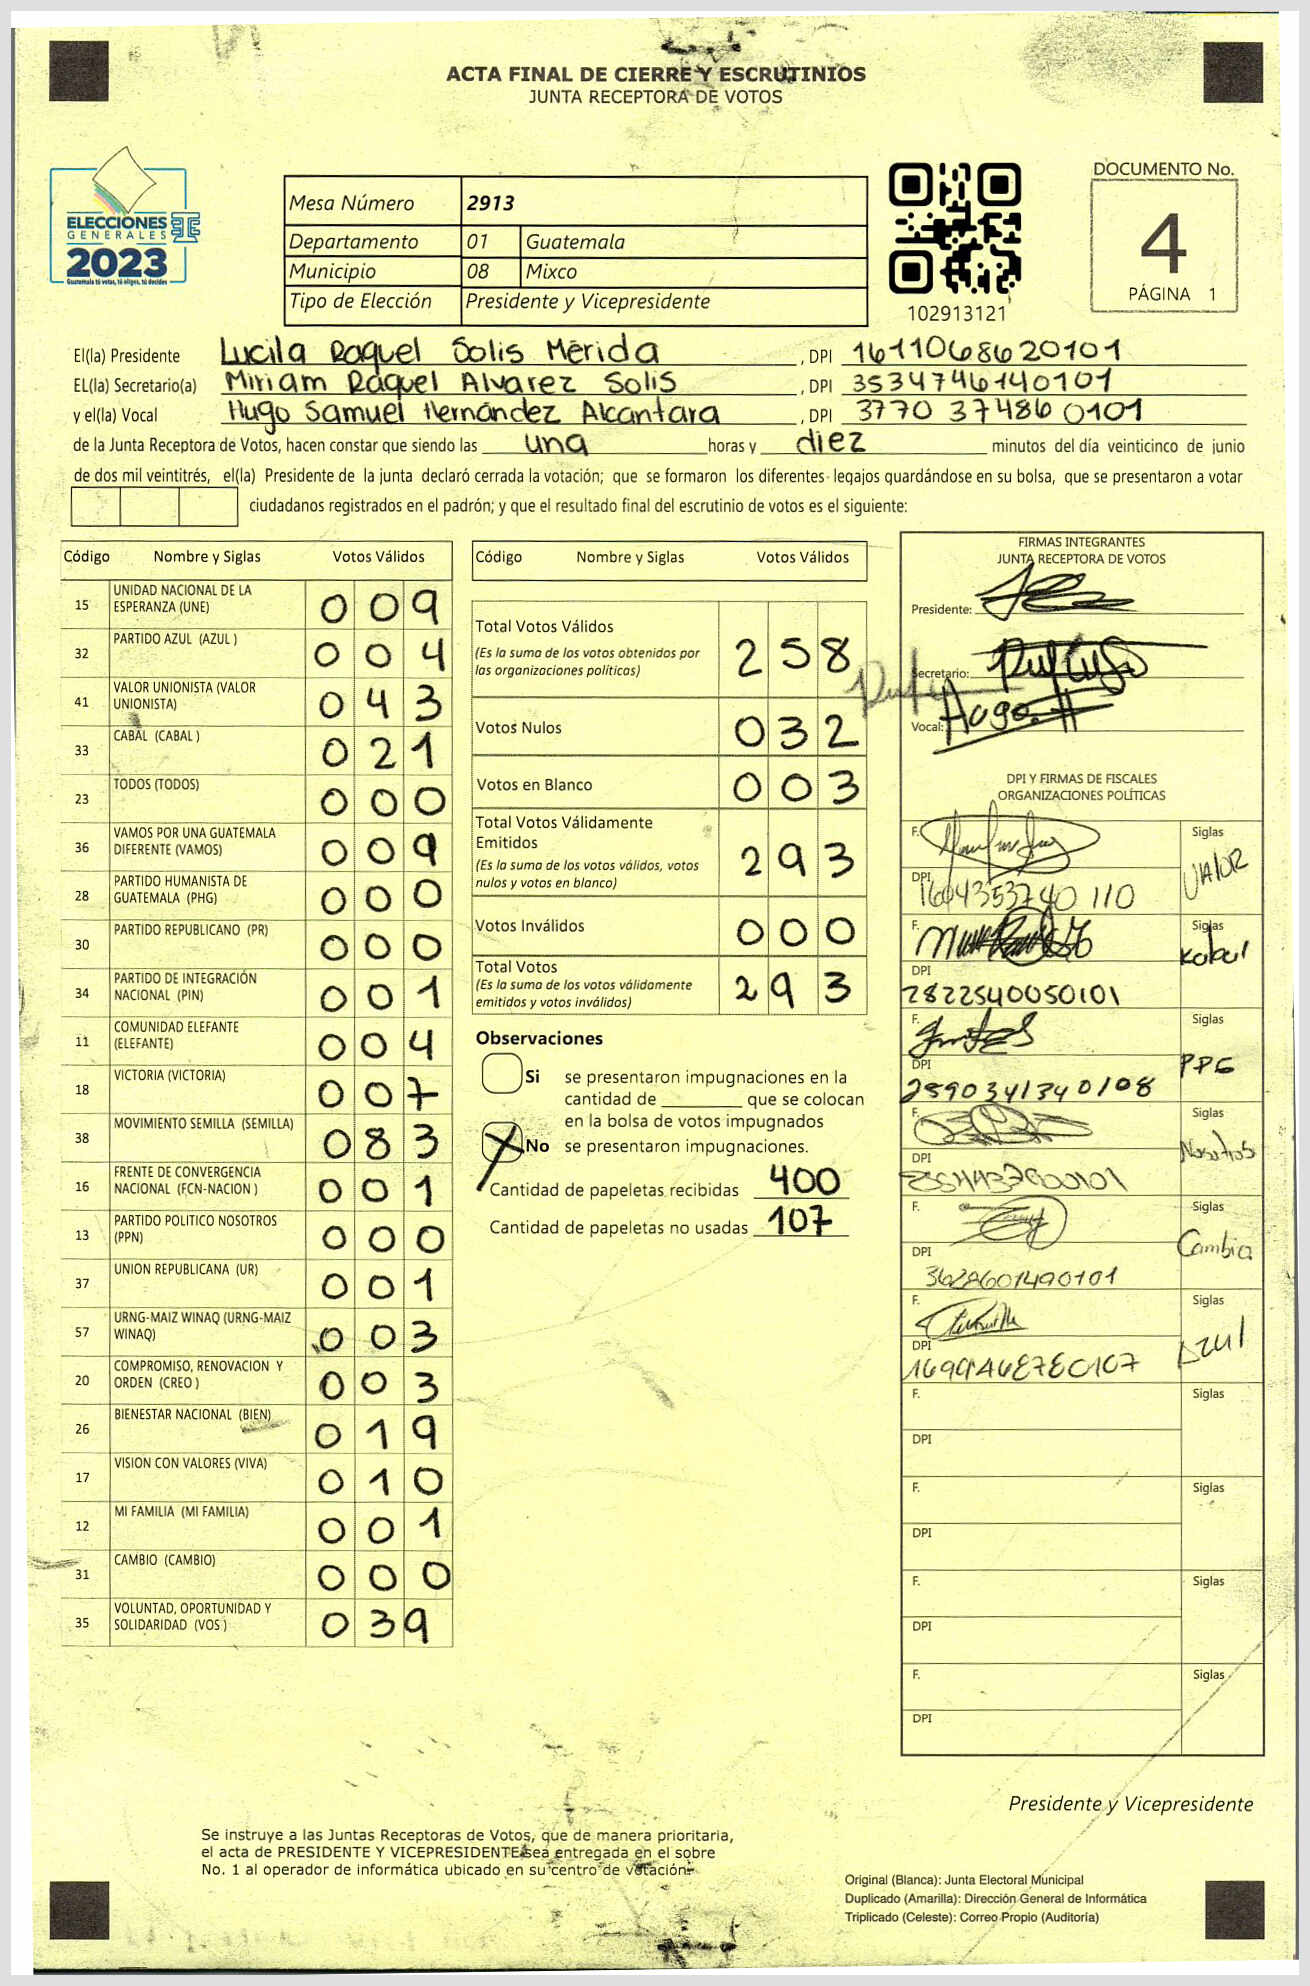 ACTA FINAL DE CIERRE Y ESCRUTINIOS
JUNTA RECEPTORA DE VOTOS
ELECCIONES
GENERALES
2023
Guatemala tú votas, tú eliges, tú decides
Mesa Número 2913
Departamento 01 Guatemala
Municipio 08 Mixco
Tipo de Elección Presidente y Vicepresidente
102913121
DOCUMENTO No.
4
PÁGINA 1
El(la) Presidente Lucila Raquel Solis Mérida, DPI 1611068620101
EL(la) Secretario(a) Miriam Raquel Alvarez Solis, DPI 3534746140101
y el(la) Vocal Hugo Samuel Hernández Alcantara, DPI 3770 37486 0101
de la Junta Receptora de Votos, hacen constar que siendo las una horas y diez minutos del día veinticinco de junio
de dos mil veintitrés, el(la) Presidente de la junta declaró cerrada la votación; que se formaron los diferentes legajos guardándose en su bolsa, que se presentaron a votar
ciudadanos registrados en el padrón; y que el resultado final del escrutinio de votos es el siguiente:
Código Nombre y Siglas Votos Válidos
15 UNIDAD NACIONAL DE LA ESPERANZA (UNE) 009
32 PARTIDO AZUL (AZUL ) 004
41 VALOR UNIONISTA (VALOR UNIONISTA) 043
33 CABAL (CABAL ) 021
23 TODOS (TODOS) 000
36 VAMOS POR UNA GUATEMALA DIFERENTE (VAMOS) 009
28 PARTIDO HUMANISTA DE GUATEMALA (PHG) 000
30 PARTIDO REPUBLICANO (PR) 000
34 PARTIDO DE INTEGRACIÓN NACIONAL (PIN) 001
11 COMUNIDAD ELEFANTE (ELEFANTE) 004
18 VICTORIA (VICTORIA) 007
38 MOVIMIENTO SEMILLA (SEMILLA) 083
16 FRENTE DE CONVERGENCIA NACIONAL (FCN-NACION ) 001
13 PARTIDO POLITICO NOSOTROS (PPN) 000
37 UNION REPUBLICANA (UR) 001
57 URNG-MAIZ WINAQ (URNG-MAIZ WINAQ) 003
20 COMPROMISO, RENOVACION Y ORDEN (CREO ) 003
26 BIENESTAR NACIONAL (BIEN) 019
17 VISION CON VALORES (VIVA) 010
12 MI FAMILIA (MI FAMILIA) 001
31 CAMBIO (CAMBIO) 000
35 VOLUNTAD, OPORTUNIDAD Y SOLIDARIDAD (VOS ) 039
Código Nombre y Siglas Votos Válidos
Total Votos Válidos 258
(Es la suma de los votos obtenidos por
las organizaciones políticas)
Votos Nulos 032
Votos en Blanco 003
Total Votos Válidamente
Emitidos 293
(Es la suma de los votos válidos, votos
nulos y votos en blanco)
Votos Inválidos 000
Total Votos 293
(Es la suma de los votos válidamente
emitidos y votos inválidos)
Observaciones
Si se presentaron impugnaciones en la
cantidad de que se colocan
en la bolsa de votos impugnados
X No se presentaron impugnaciones.
Cantidad de papeletas recibidas 400
Cantidad de papeletas no usadas 107
FIRMAS INTEGRANTES
JUNTA RECEPTORA DE VOTOS
Presidente:
Secretario:
Vocal: Hugo H
DPI Y FIRMAS DE FISCALES
ORGANIZACIONES POLÍTICAS
F. Siglas VALOR
DPI 1604353740110
F. Siglas Kabal
DPI 2822540050101
F. Siglas PPG
DPI 2590341340108
F. Siglas Nosotros
DPI
F. Siglas Cambia
DPI 3628601490101
F. Siglas Azul
DPI
F. Siglas
DPI
F. Siglas
DPI
F. Siglas
DPI
F. Siglas
DPI
Presidente y Vicepresidente
Se instruye a las Juntas Receptoras de Votos, que de manera prioritaria,
el acta de PRESIDENTE Y VICEPRESIDENTE sea entregada en el sobre
No. 1 al operador de informática ubicado en su centro de votación.
Original (Blanca): Junta Electoral Municipal
Duplicado (Amarilla): Dirección General de Informática
Triplicado (Celeste): Correo Propio (Auditoría)